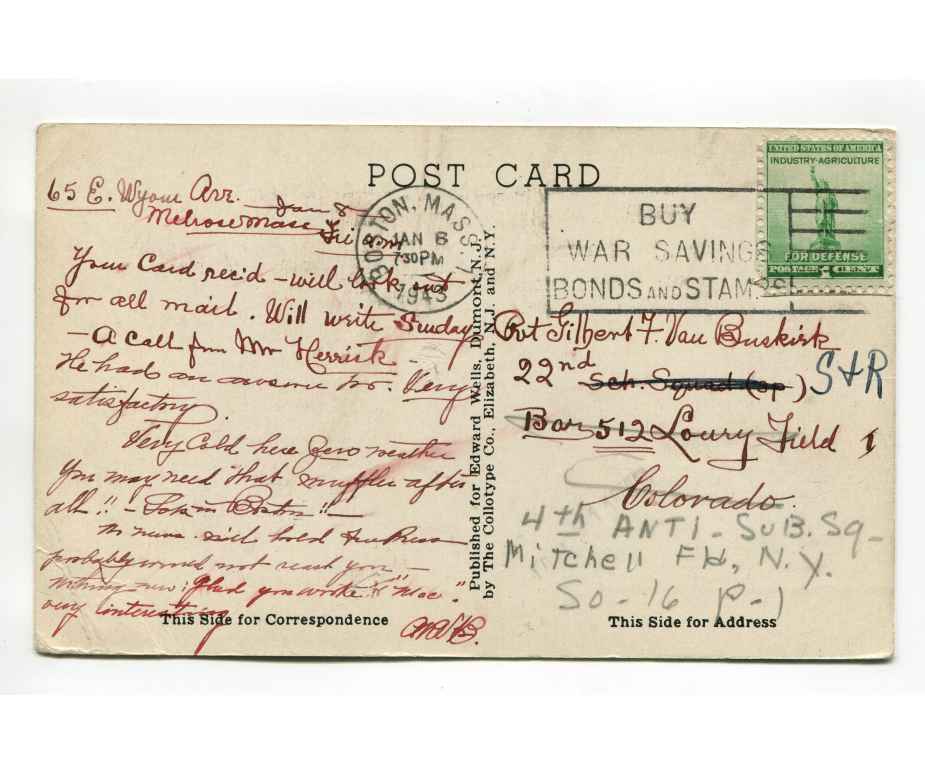 POST CARD
UNITED STATES OF AMERICA
INDUSTRY·AGRICULTURE
FOR DEFENSE
POSTAGE 1 CENT
BOSTON, MASS.
JAN 6
7 30 PM
1943
BUY
WAR SAVINGS
BONDS AND STAMPS
65 E. Wyom Avr.
Melrose Mass
Your Card rec'd – will look out
for all mail. Will write Sunday
– A call from Mr Herrick –
He had an awesome no. Very
satisfactory.
Very Cold here Zero weather
You may need that muffler after
all!! –
hold
probably would not reach you –
nothing new. Glad you wrote to "Mac".
very interesting
MVB.
This Side for Correspondence
Published for Edward Wells, Dumont, N.J.
by The Collotype Co., Elizabeth, N.J. and N.Y.
Pvt Gilbert F. Van Buskirk
22nd Sch. Squad (sp.) S+R
Bar 512 Lowry Field 1
Colorado.
4th ANTI-SUB. Sq-
Mitchell Fld, N.Y.
So-16 P-1
This Side for Address